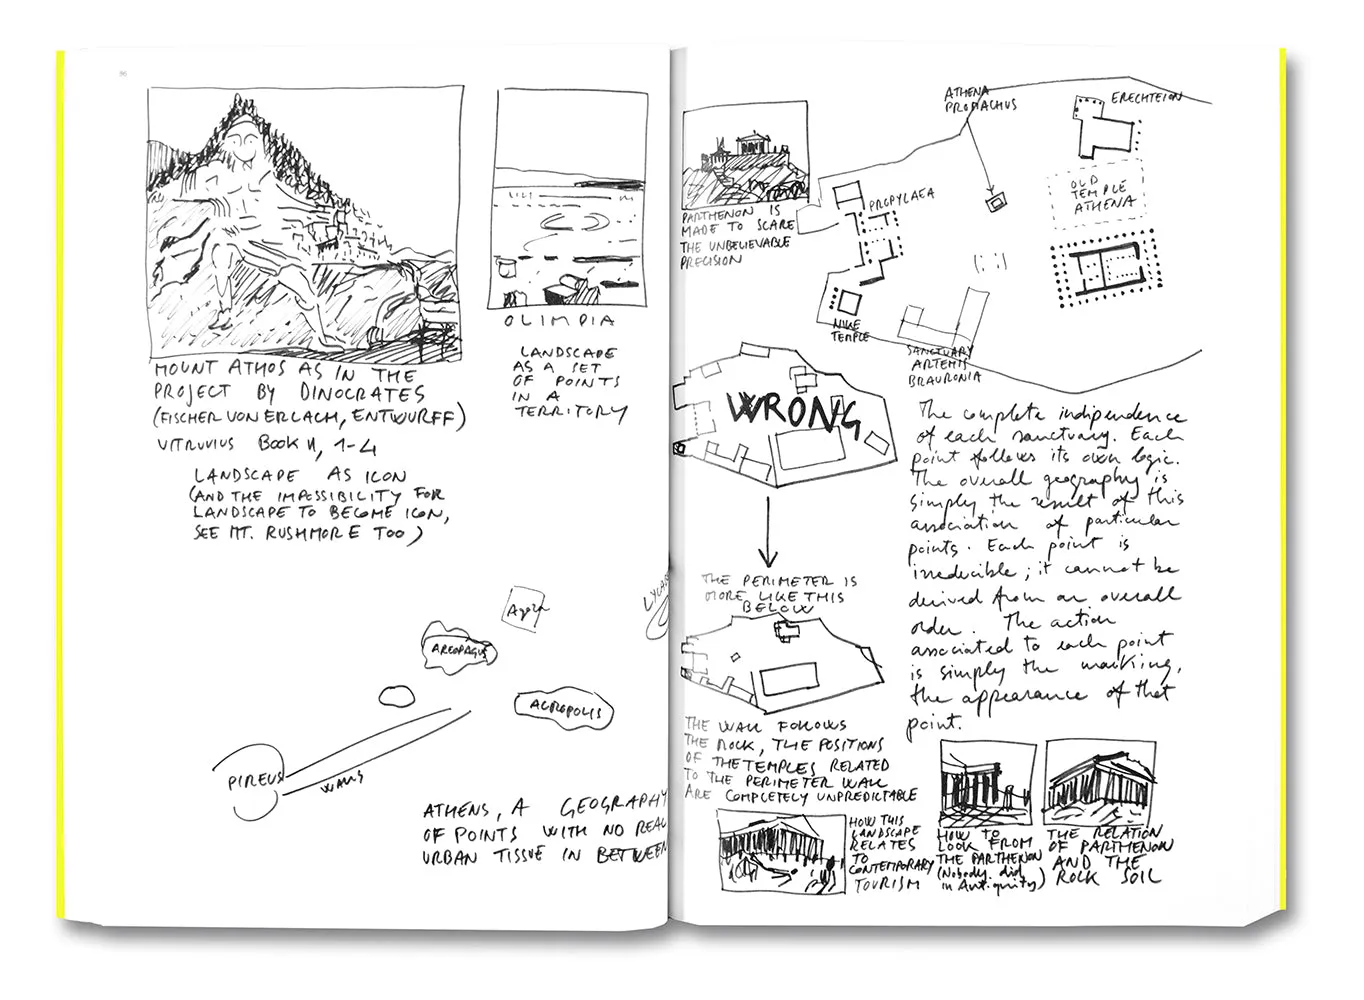 96
MOUNT ATHOS AS IN THE
PROJECT BY DINOCRATES
(FISCHER VON ERLACH, ENTWURFF)
VITRUVIUS BOOK II, 1-4
LANDSCAPE AS ICON
(AND THE IMPASSIBILITY FOR
LANDSCAPE TO BECOME ICON,
SEE MT. RUSHMORE TOO)
OLIMPIA
LANDSCAPE
AS A SET
OF POINTS
IN A
TERRITORY
Agora
AREOPAGUS
ACROPOLIS
PIREUS
WALLS
ATHENS, A GEOGRAPHY
OF POINTS WITH NO REAL
URBAN TISSUE IN BETWEEN
PARTHENON IS
MADE TO SCARE
THE UNBELIEVABLE
PRECISION
ATHENA
PROMACHUS
ERECHTEION
OLD
TEMPLE
ATHENA
PROPYLAEA
NIKE
TEMPLE
SANCTUARY
ARTEMIS
BRAURONIA
WRONG
THE PERIMETER IS
MORE LIKE THIS
BELOW
THE WALL FOLLOWS
THE ROCK, THE POSITIONS
OF THE TEMPLES RELATED
TO THE PERIMETER WALL
ARE COMPLETELY UNPREDICTABLE
The complete indipendence
of each sanctuary. Each
point follows its own logic.
The overall geography is
simply the result of this
association of particular
points. Each point is
irreducible; it cannot be
derived from an overall
order. The action
associated to each point
is simply the marking,
the appearance of that
point.
HOW THIS
LANDSCAPE
RELATES
TO
CONTEMPORARY
TOURISM
HOW TO
LOOK FROM
THE PARTHENON
(Nobody did
in Antiquity)
THE RELATION
OF PARTHENON
AND THE
ROCK SOIL